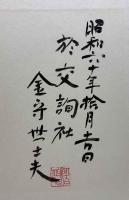 昭和六十年拾月吉日
於交詢社
金守世士夫